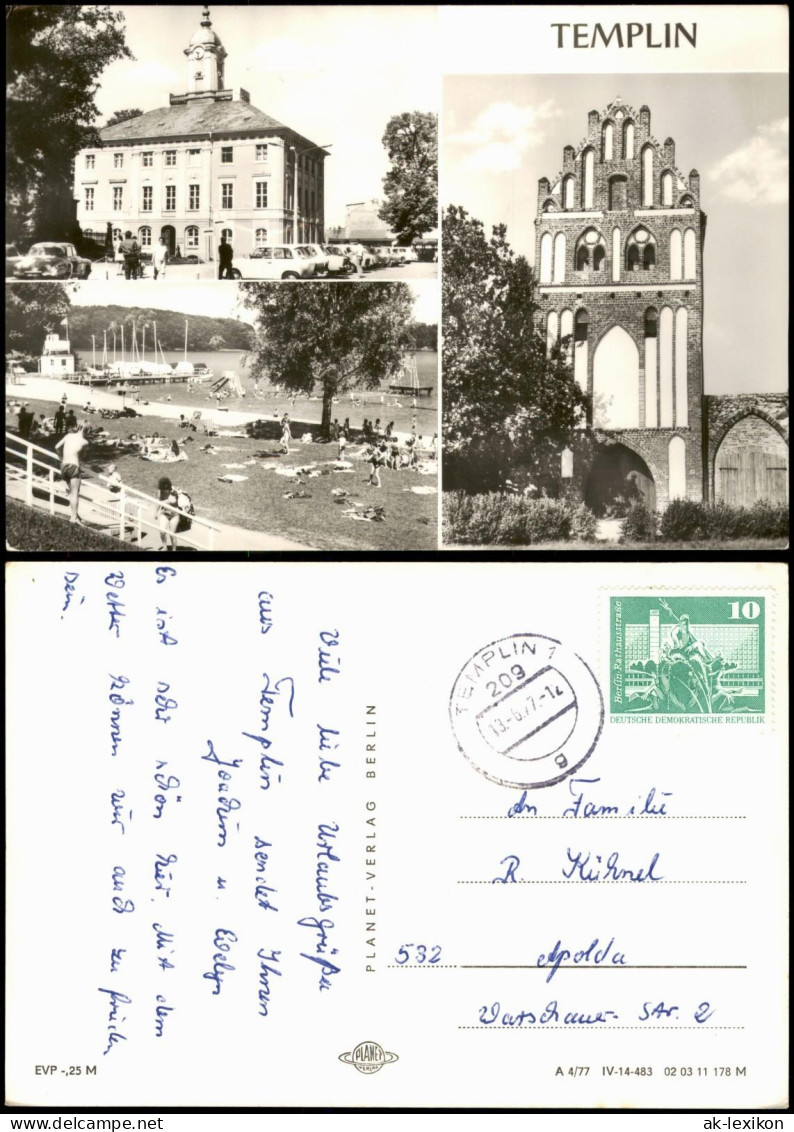 TEMPLIN
Viele liebe Urlaubsgrüße
aus Templin sendet Ihnen
Joachim u. Evelyn
Es ist sehr schön hier. Mit dem
Wetter können wir auch zufrieden
sein.
PLANET-VERLAG BERLIN
TEMPLIN 1
209
13.-6.77.-12
a
10
Berlin·Rathausstraße
DEUTSCHE DEMOKRATISCHE REPUBLIK
An Familie
R. Kühnel
532 Apolda
Warschauer Str. 2
EVP -,25 M
PLANET
VERLAG
A 4/77 IV-14-483 02 03 11 178 M
ak-lexikon
ak-lexikon.com